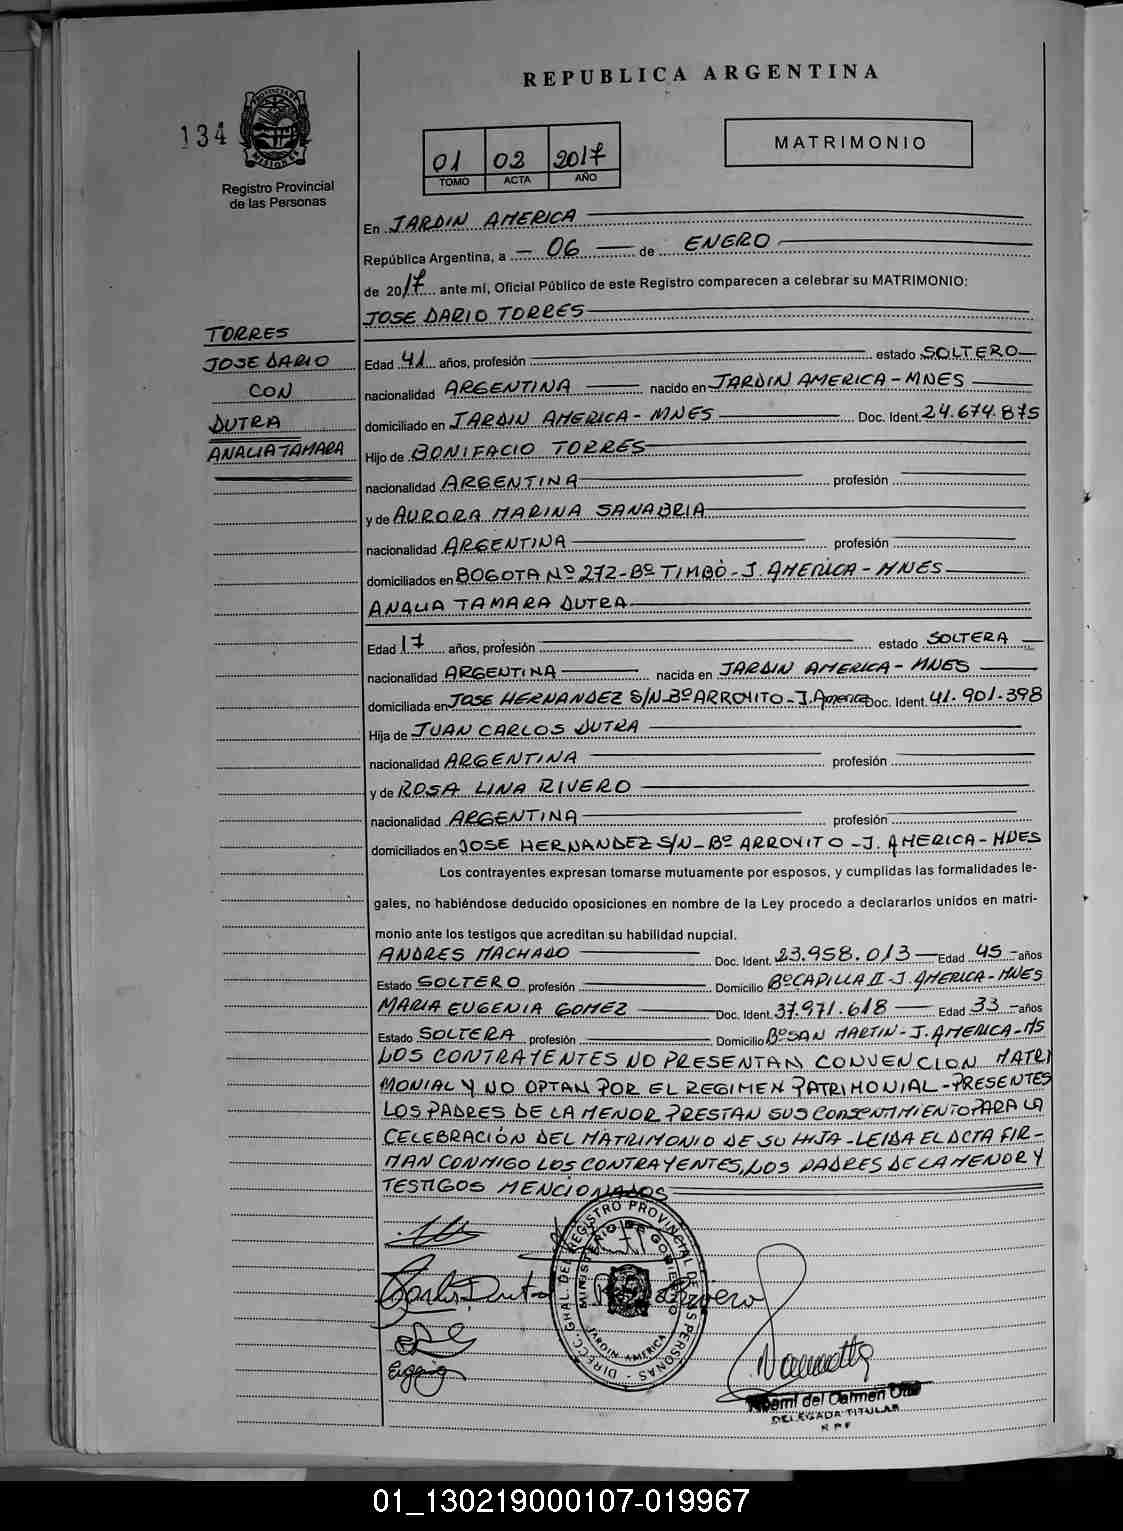 REPUBLICA ARGENTINA
134
PROVINCIA DE MISIONES
Registro Provincial
de las Personas
01 02 2017
TOMO ACTA AÑO
MATRIMONIO
En JARDIN AMERICA
República Argentina, a - 06 - de ENERO
de 2017 ante mí, Oficial Público de este Registro comparecen a celebrar su MATRIMONIO:
JOSE DARIO TORRES
TORRES
JOSE DARIO
CON
DUTRA
ANALIA TAMARA
Edad 41 años, profesión estado SOLTERO
nacionalidad ARGENTINA nacido en JARDIN AMERICA - MNES
domiciliado en JARDIN AMERICA - MNES Doc. Ident. 24.674.875
Hijo de BONIFACIO TORRES
nacionalidad ARGENTINA profesión
y de AURORA MARINA SANABRIA
nacionalidad ARGENTINA profesión
domiciliados en BOGOTA Nº 272 - Bº TIMBÒ - J. AMERICA - MNES
ANALIA TAMARA DUTRA
Edad 17 años, profesión estado SOLTERA
nacionalidad ARGENTINA nacida en JARDIN AMERICA - MNES
domiciliada en JOSE HERNANDEZ S/N - Bº ARROYITO - J. America Doc. Ident. 41.901.398
Hija de JUAN CARLOS DUTRA
nacionalidad ARGENTINA profesión
y de ROSA LINA RIVERO
nacionalidad ARGENTINA profesión
domiciliados en JOSE HERNANDEZ S/N - Bº ARROYITO - J. AMERICA - MNES
Los contrayentes expresan tomarse mutuamente por esposos, y cumplidas las formalidades le-
gales, no habiéndose deducido oposiciones en nombre de la Ley procedo a declararlos unidos en matri-
monio ante los testigos que acreditan su habilidad nupcial.
ANDRES MACHADO Doc. Ident. 23.958.013 Edad 45 años
Estado SOLTERO profesión Domicilio Bº CAPILLA II - J. AMERICA - MNES
MARIA EUGENIA GOMEZ Doc. Ident. 37.971.618 Edad 33 años
Estado SOLTERA profesión Domicilio Bº SAN MARTIN - J. AMERICA - MS
LOS CONTRAYENTES NO PRESENTAN CONVENCION MATRI
MONIAL Y NO OPTAN POR EL REGIMEN PATRIMONIAL - PRESENTES
LOS PADRES DE LA MENOR PRESTAN SUS CONSENTIMIENTO PARA LA
CELEBRACIÓN DEL MATRIMONIO DE SU HIJA - LEIDA EL ACTA FIR-
MAN CONMIGO LOS CONTRAYENTES, LOS PADRES DE LA MENOR Y
TESTIGOS MENCIONADOS
DIRECC. GRAL. DEL REGISTRO PROVINCIAL DE LAS PERSONAS
MINISTERIO DE GOBIERNO
JARDIN AMERICA
Carlos Dutra
Rivero
del Carmen
DELEGADA TITULAR
01_130219000107-019967